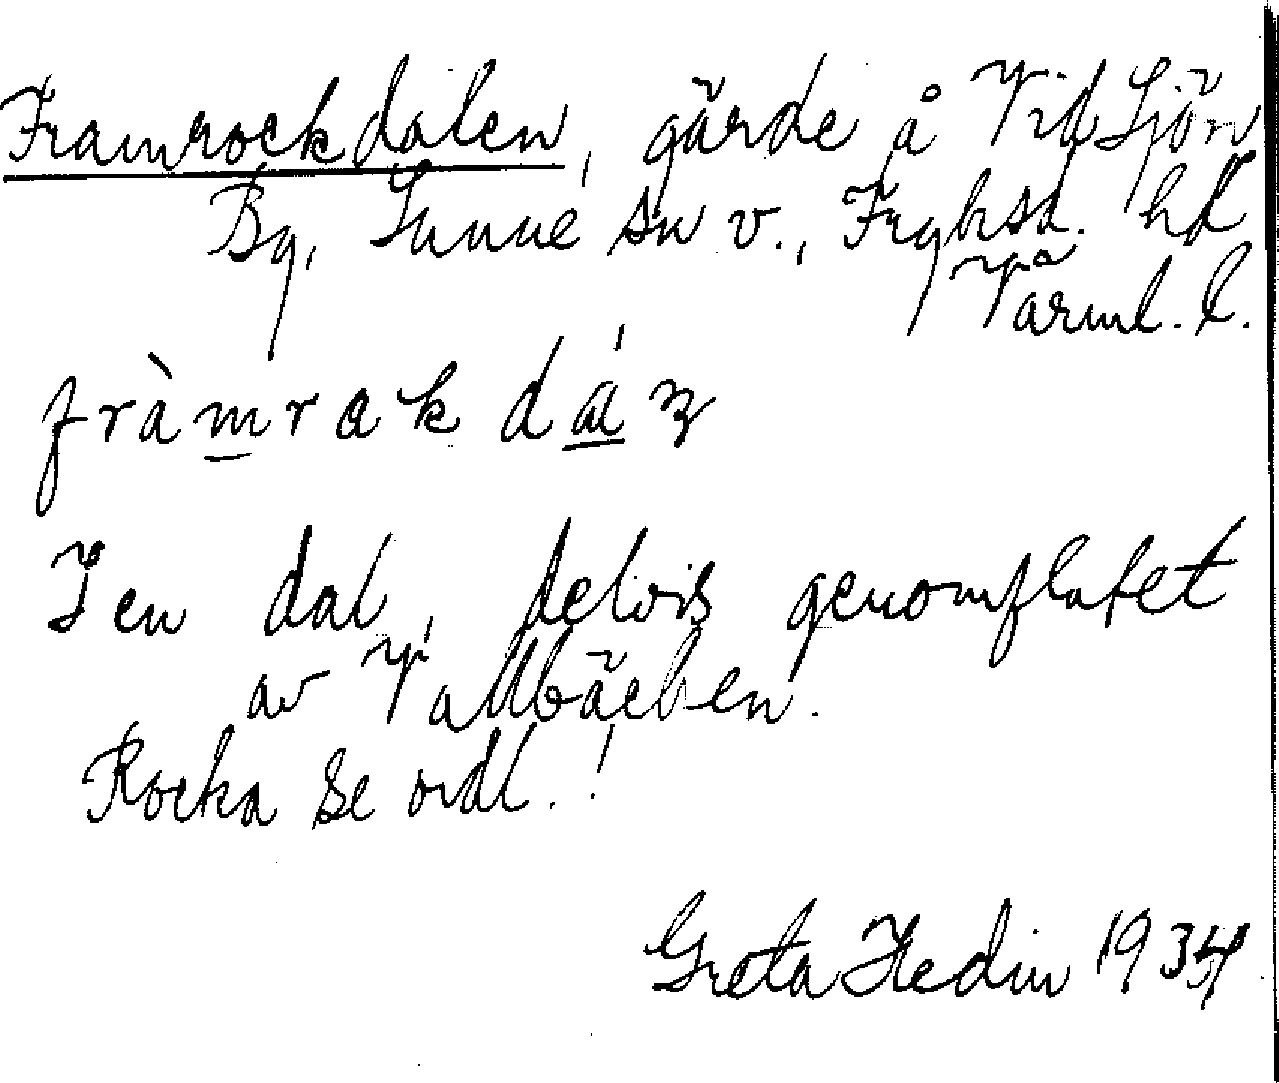 Framrockdalen, gärde å Vid Sjön
By, Sunne sn v., Fryksd. hd
Värml. l.
fràmrakdá
I en dal, delvis genomflutet
av Vallbäcken.
Rocka se ordl.!
Greta Hedin 1934